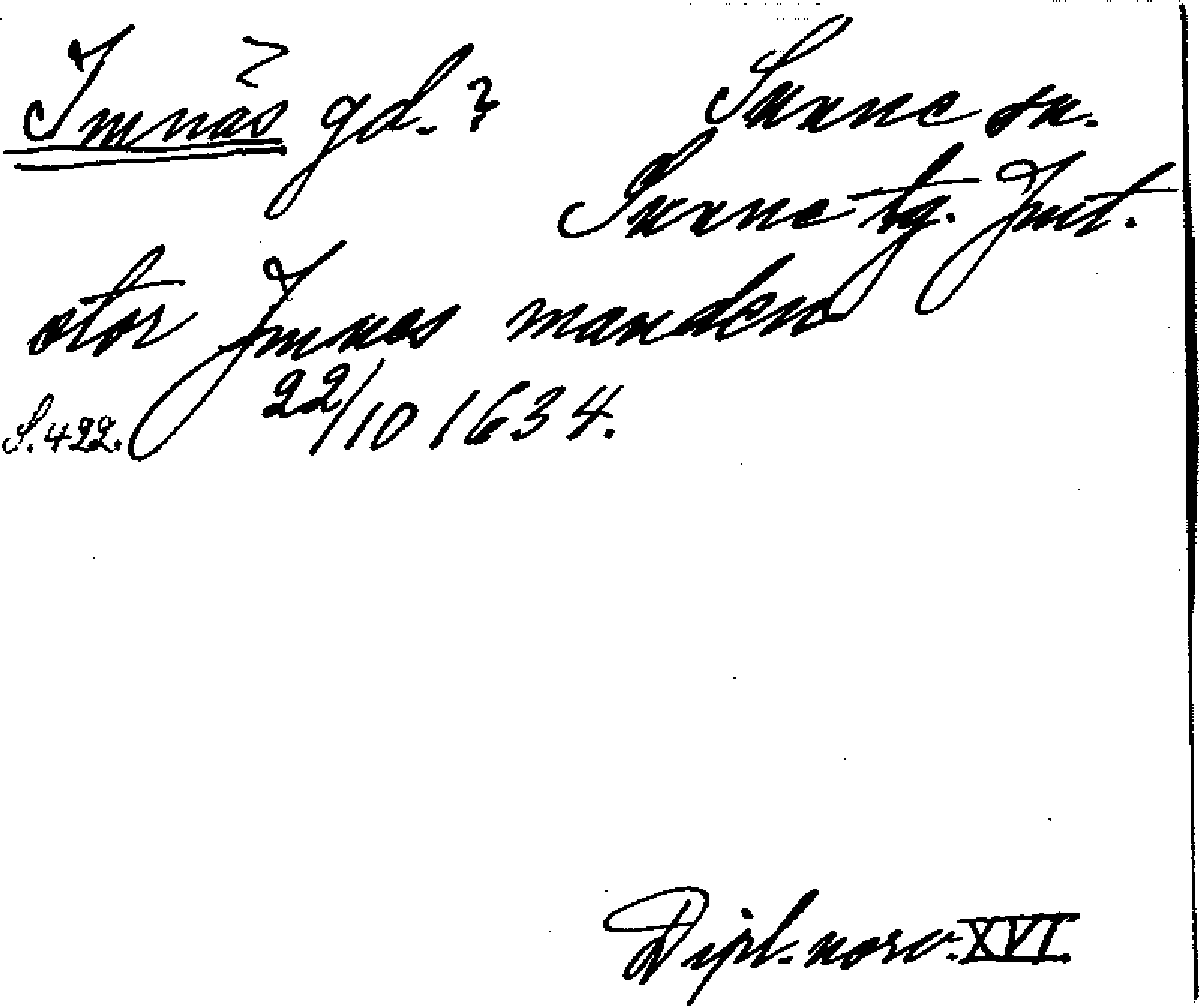 Imnäs gd. ? Sunne sn.
Sunne tg. Jmt.
stor Jmnes manden
S. 422. 22/10 1634.
Dipl. norv. XVI.